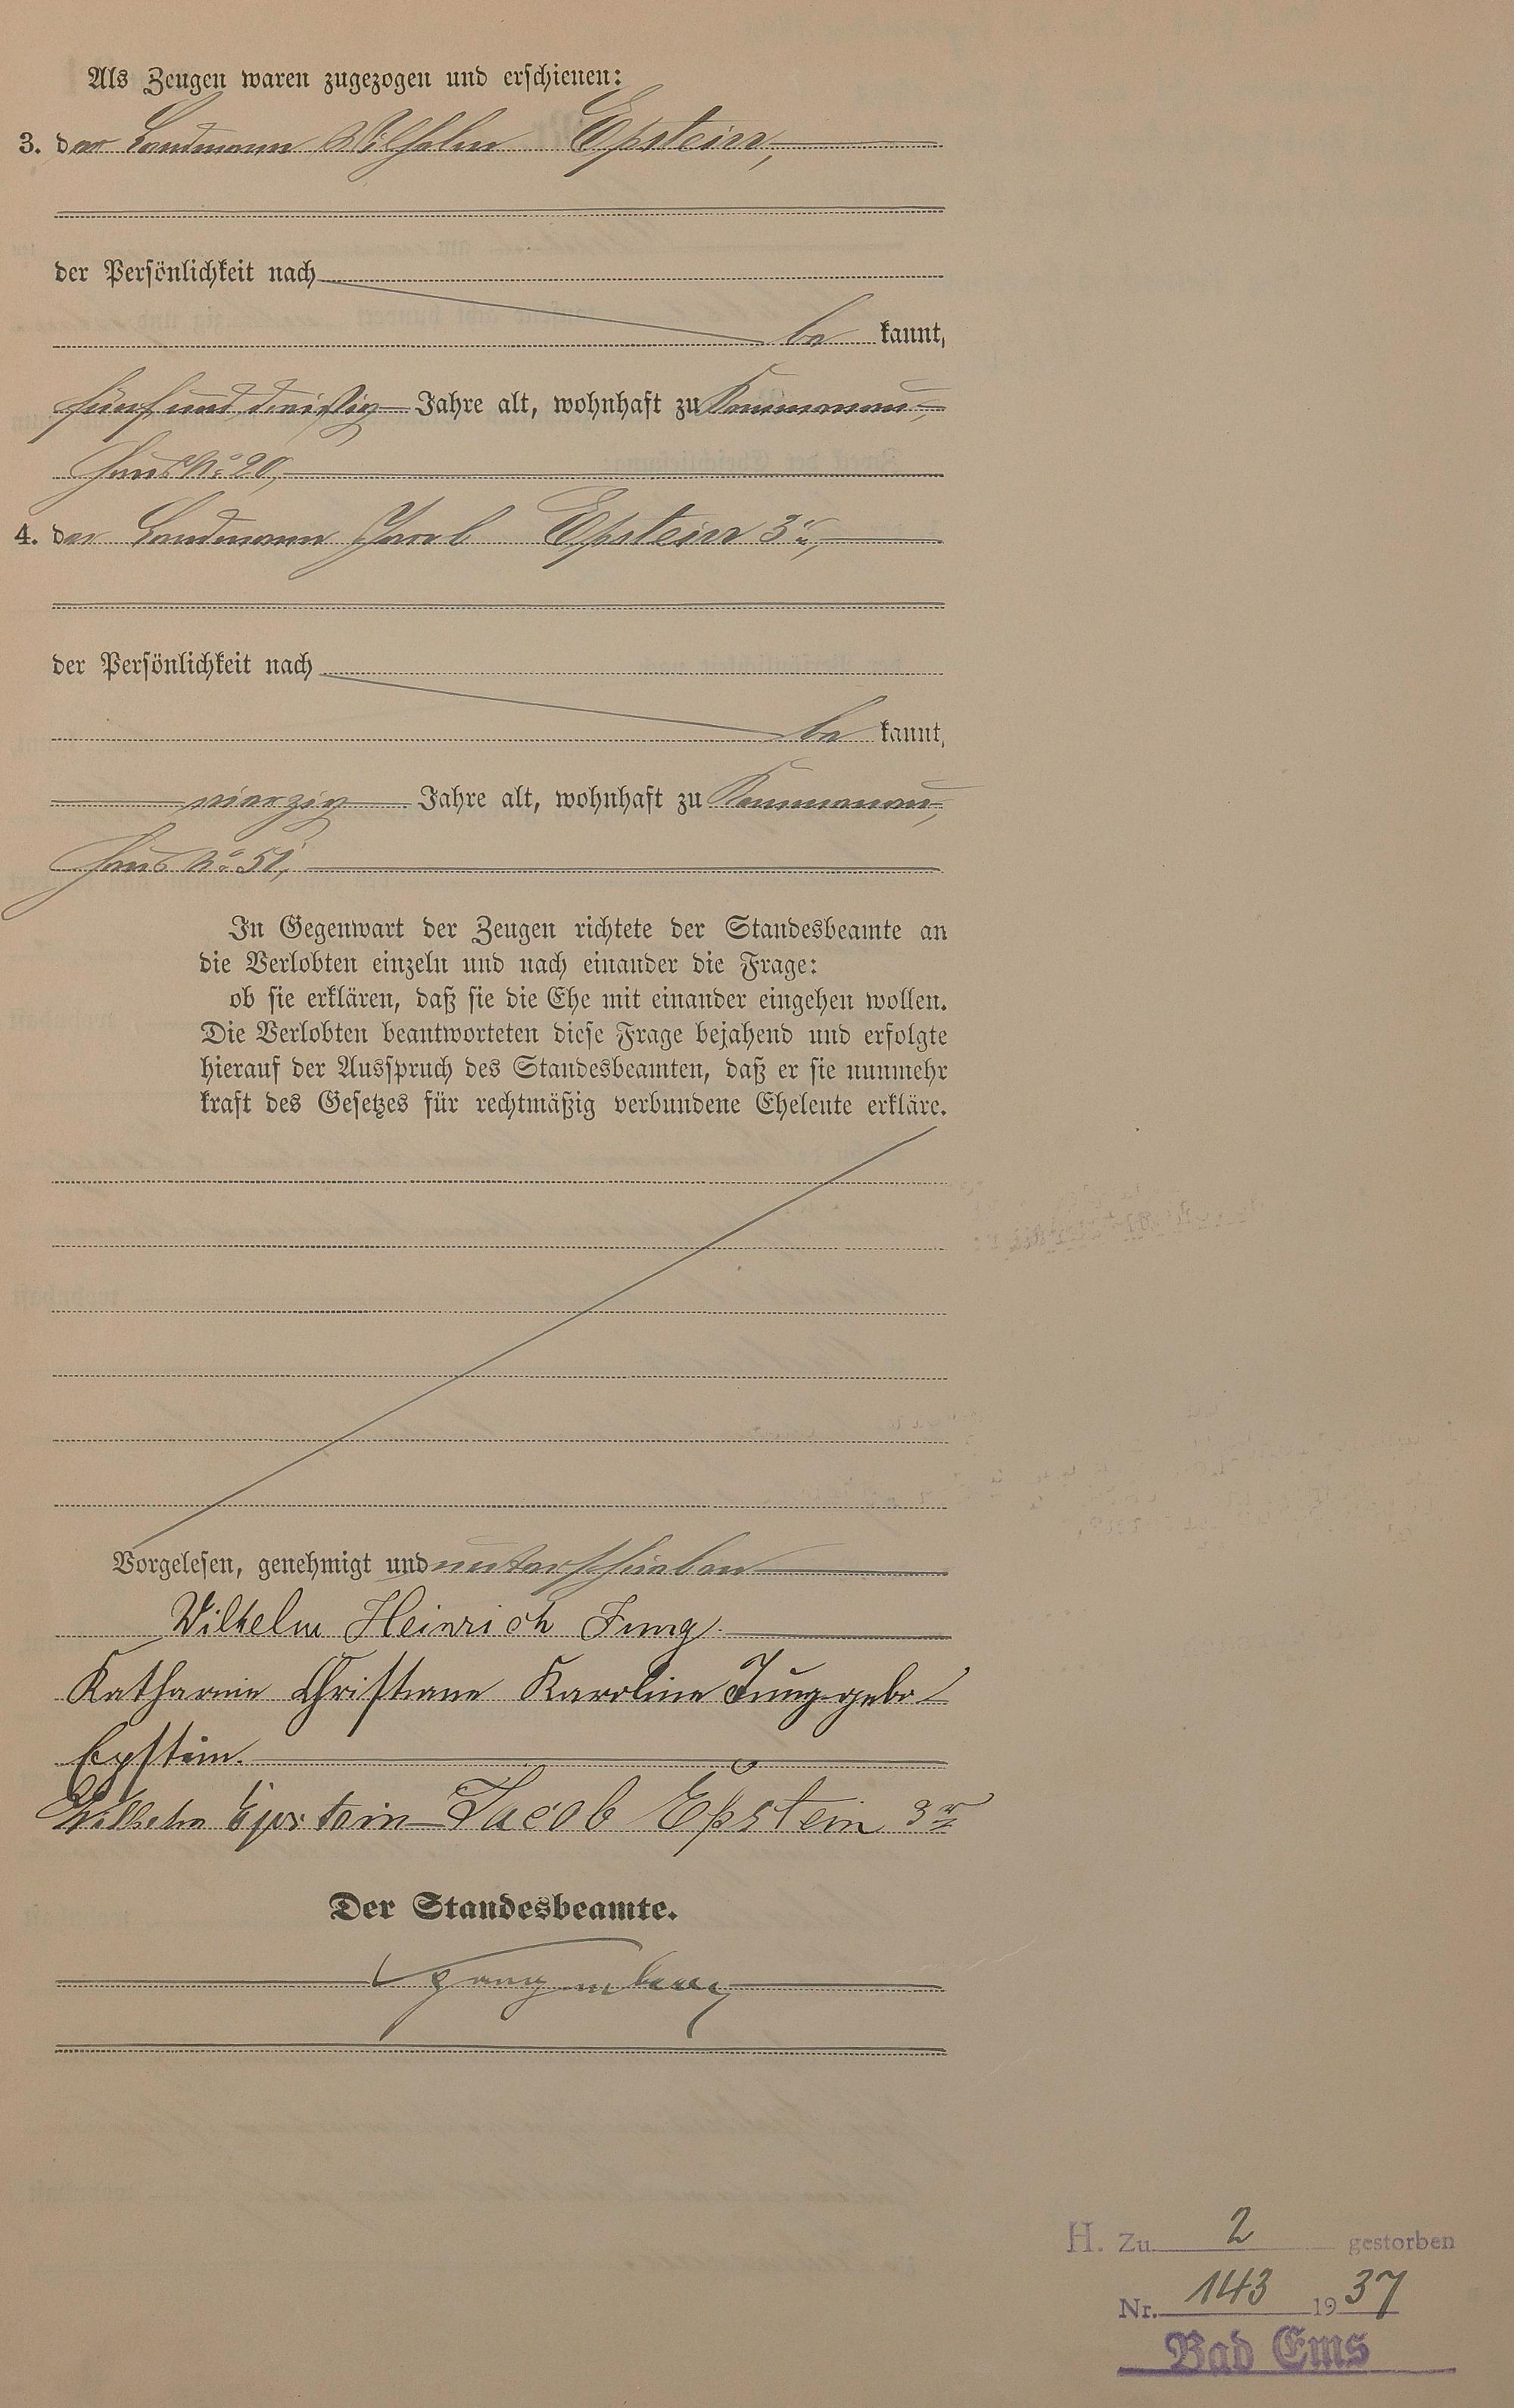 Als Zeugen waren zugezogen und erschienen:
3. der Landmann Wilhelm Epstein,
der Persönlichkeit nach
be kannt,
fünf und dreißig Jahre alt, wohnhaft zu Kemmenau,
Haus No 20,
4. der Landmann Jacob Epstein 3r,
der Persönlichkeit nach
be kannt,
vierzig Jahre alt, wohnhaft zu Kemmenau,
Haus No 51,
In Gegenwart der Zeugen richtete der Standesbeamte an
die Verlobten einzeln und nach einander die Frage:
ob sie erklären, daß sie die Ehe mit einander eingehen wollen.
Die Verlobten beantworteten diese Frage bejahend und erfolgte
hierauf der Ausspruch des Standesbeamten, daß er sie nunmehr
kraft des Gesetzes für rechtmäßig verbundene Eheleute erkläre.
Vorgelesen, genehmigt und unterschrieben
Wilhelm Heinrich Jung.
Katharine Christiane Karoline Jung gebo
Epstein.
Wilhelm Epstein Jacob Epstein 3r
Der Standesbeamte.
H. Zu 2 gestorben
Nr. 143 1937
Bad Ems